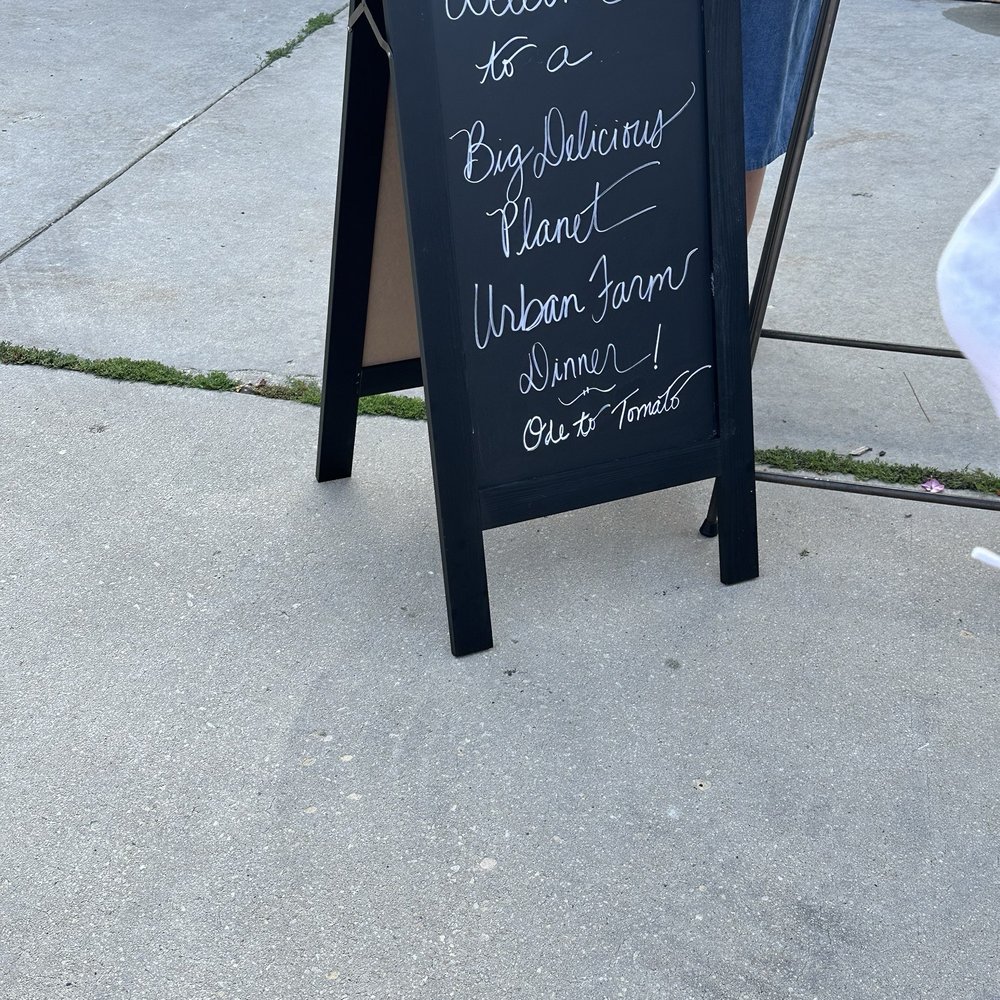 Welcome
to a
Big Delicious
Planet
Urban Farm
Dinner!
Ode to Tomato